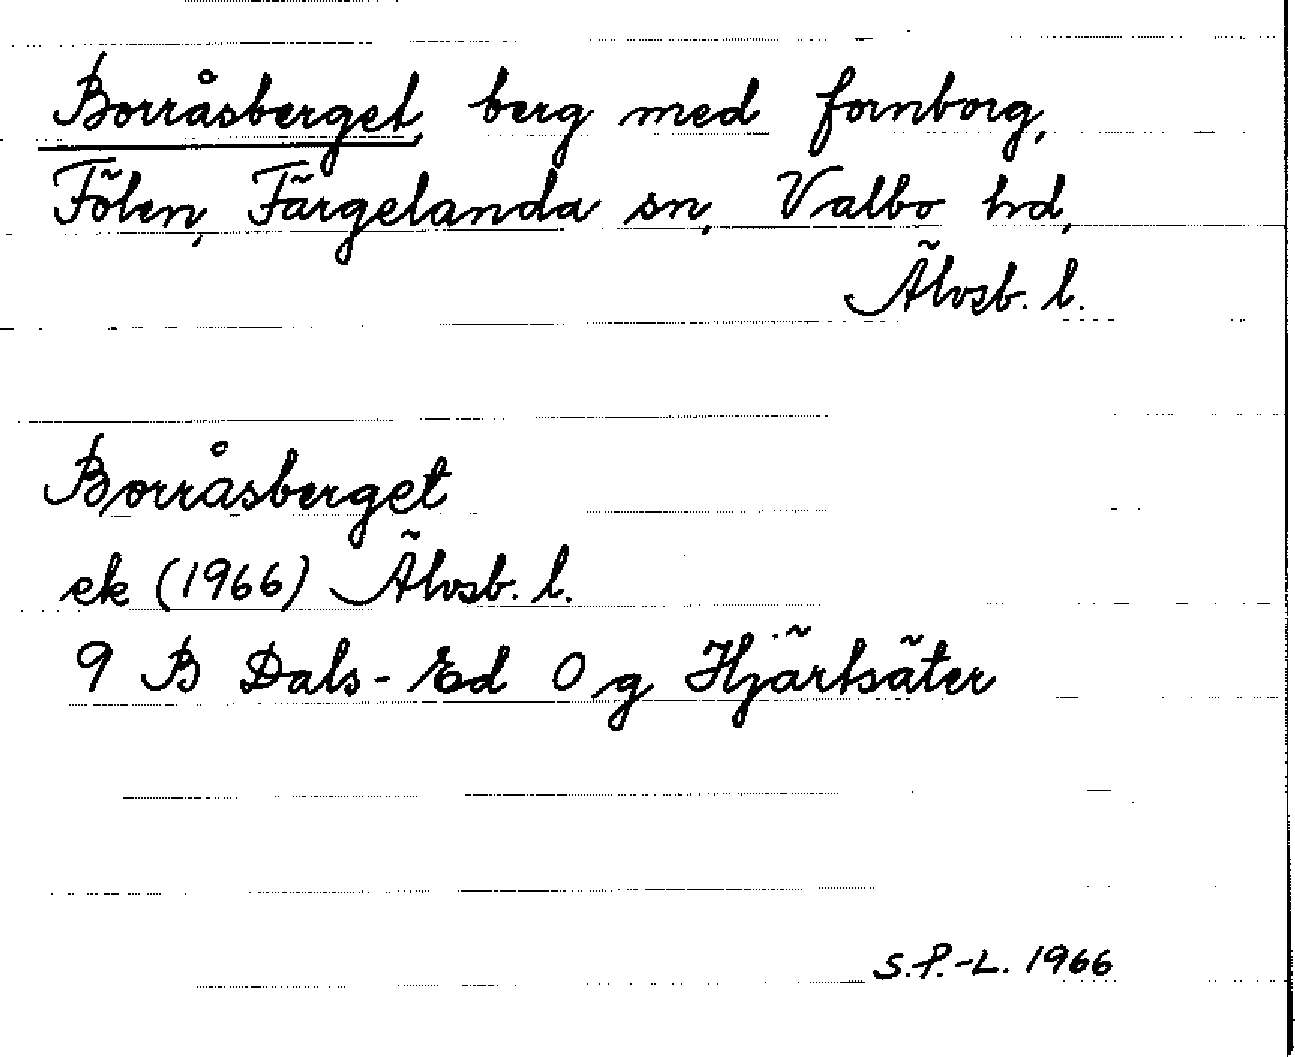 Borråsberget, berg med fornborg,
Fölen, Färgelanda sn, Valbo hd,
Älvsb. l.
Borråsberget
ek (1966) Älvsb. l.
9 B Dals-Ed 0 g Hjärtsäter
S.P.-L. 1966